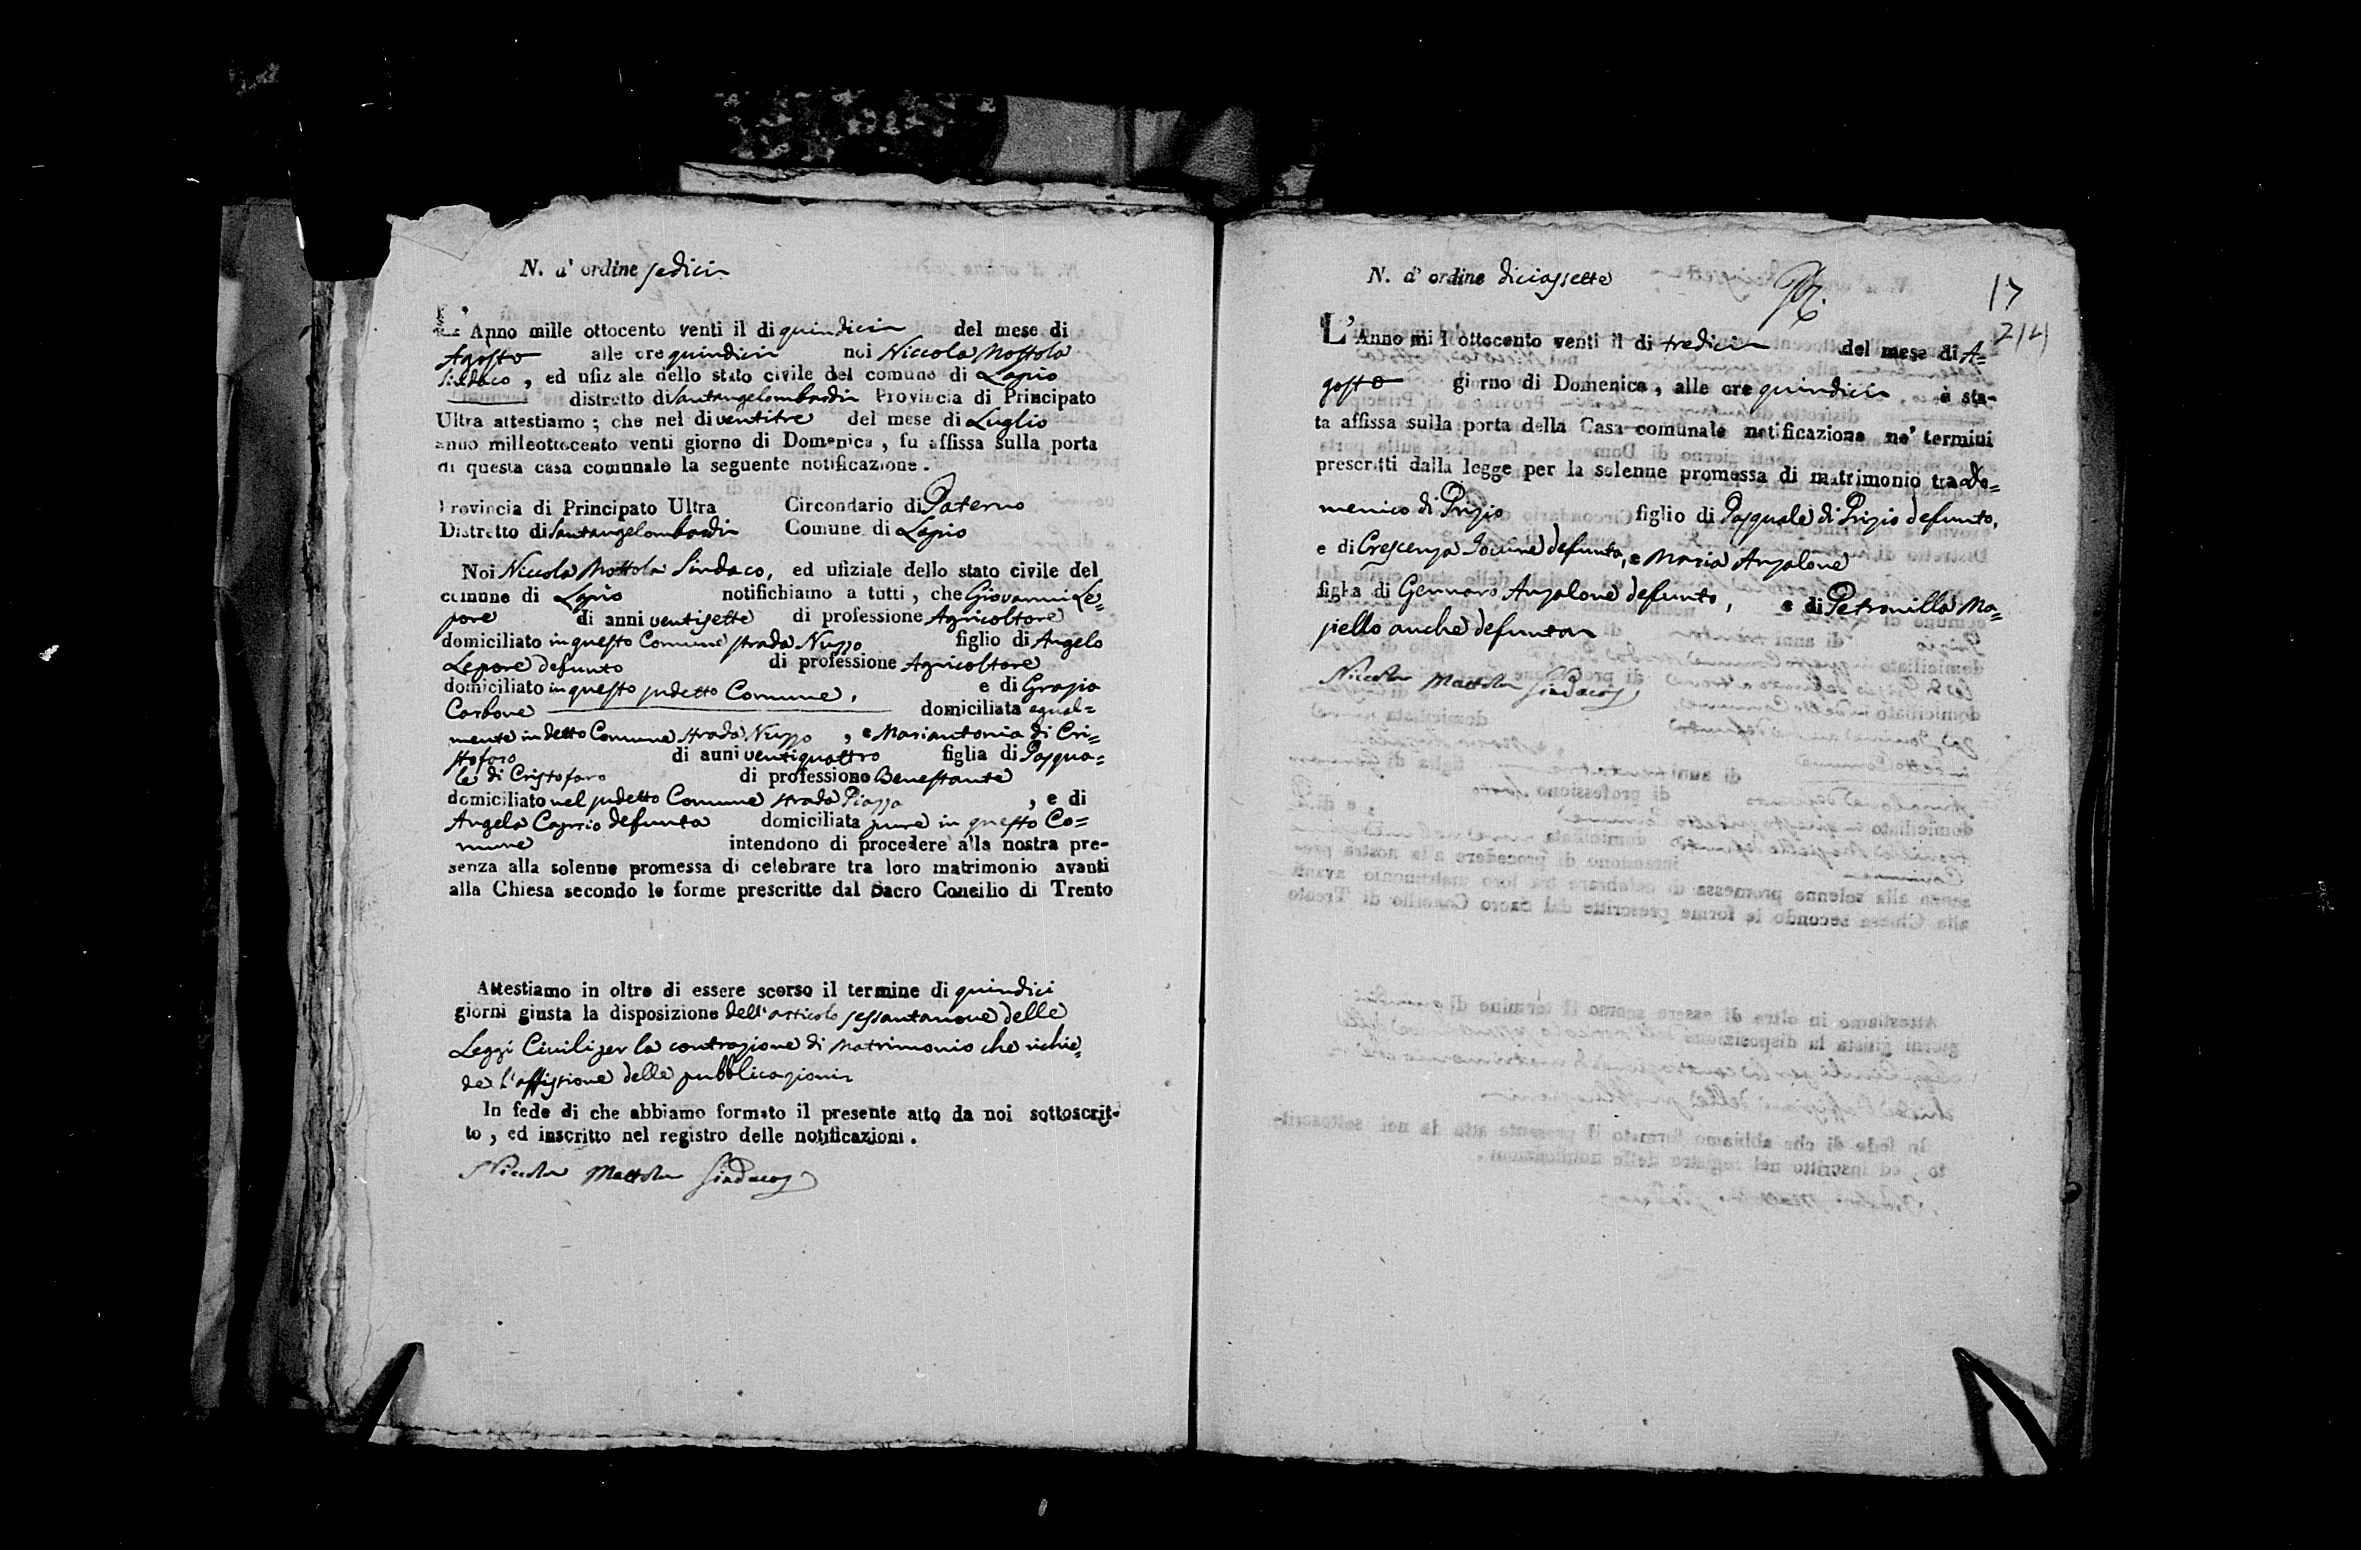 N. d' ordine sedici
L' Anno mille ottocento venti il di quindici del mese di
Agosto alle ore quindici noi Niccola Mottola
Sindaco, ed ufiziale dello stato civile del comune di Lapio
distretto di Santangelombardi Provincia di Principato
Ultra attestiamo; che nel di ventitre del mese di Luglio
anno milleottocento venti giorno di Domenica, fu affissa sulla porta
di questa casa comunale la seguente notificazione.
Provincia di Principato Ultra Circondario di Paterno
Distretto di Santangelombardi Comune di Lapio
Noi Niccola Mottola Sindaco, ed ufiziale dello stato civile del
comune di Lapio notifichiamo a tutti, che Giovanni Le=
pore di anni ventisette di professione Agricoltore
domiciliato in questo Comune strada Nuzzo figlio di Angelo
Lepore defunto di professione Agricoltore
domiciliato in questo sudetto Comune, e di Grazia
Carbone domiciliata egual=
mente in detto Comune strada Nuzzo, e Mariantonia di Cri=
stofaro di anni ventiquattro figlia di Pasqua=
le di Cristofaro di professione Benestante
domiciliato nel sudetto Comune strada Piazza, e di
Angela Caprio defunta domiciliata pure in questo Co=
mune intendono di procedere alla nostra pre-
senza alla solenne promessa di celebrare tra loro matrimonio avanti
alla Chiesa secondo le forme prescritte dal Sacro Concilio di Trento
Attestiamo in oltre di essere scorso il termine di quindici
giorni giusta la disposizione dell'articolo sessantanove delle
Leggi Civili per la contrazione di Matrimonio che richie=
de l'affissione delle pubblicazioni
In fede di che abbiamo formato il presente atto da noi sottoscrit-
to, ed inscritto nel registro delle notificazioni.
Niccola Mottola Sindaco
N. d' ordine diciassette
17
214
L' Anno mill'ottocento venti il di tredici del mese di A=
gosto giorno di Domenica, alle ore quindici è sta-
ta affissa sulla porta della Casa comunale notificazione ne' termini
prescritti dalla legge per la solenne promessa di matrimonio tra Do=
menico di Prizio figlio di Pasquale di Prizio defunto,
e di Crescenza defunta, e Maria Anzalone
figlia di Gennaro Anzalone defunto, e di Petronilla Ma=
siello anche defunta
Niccola Mottola Sindaco